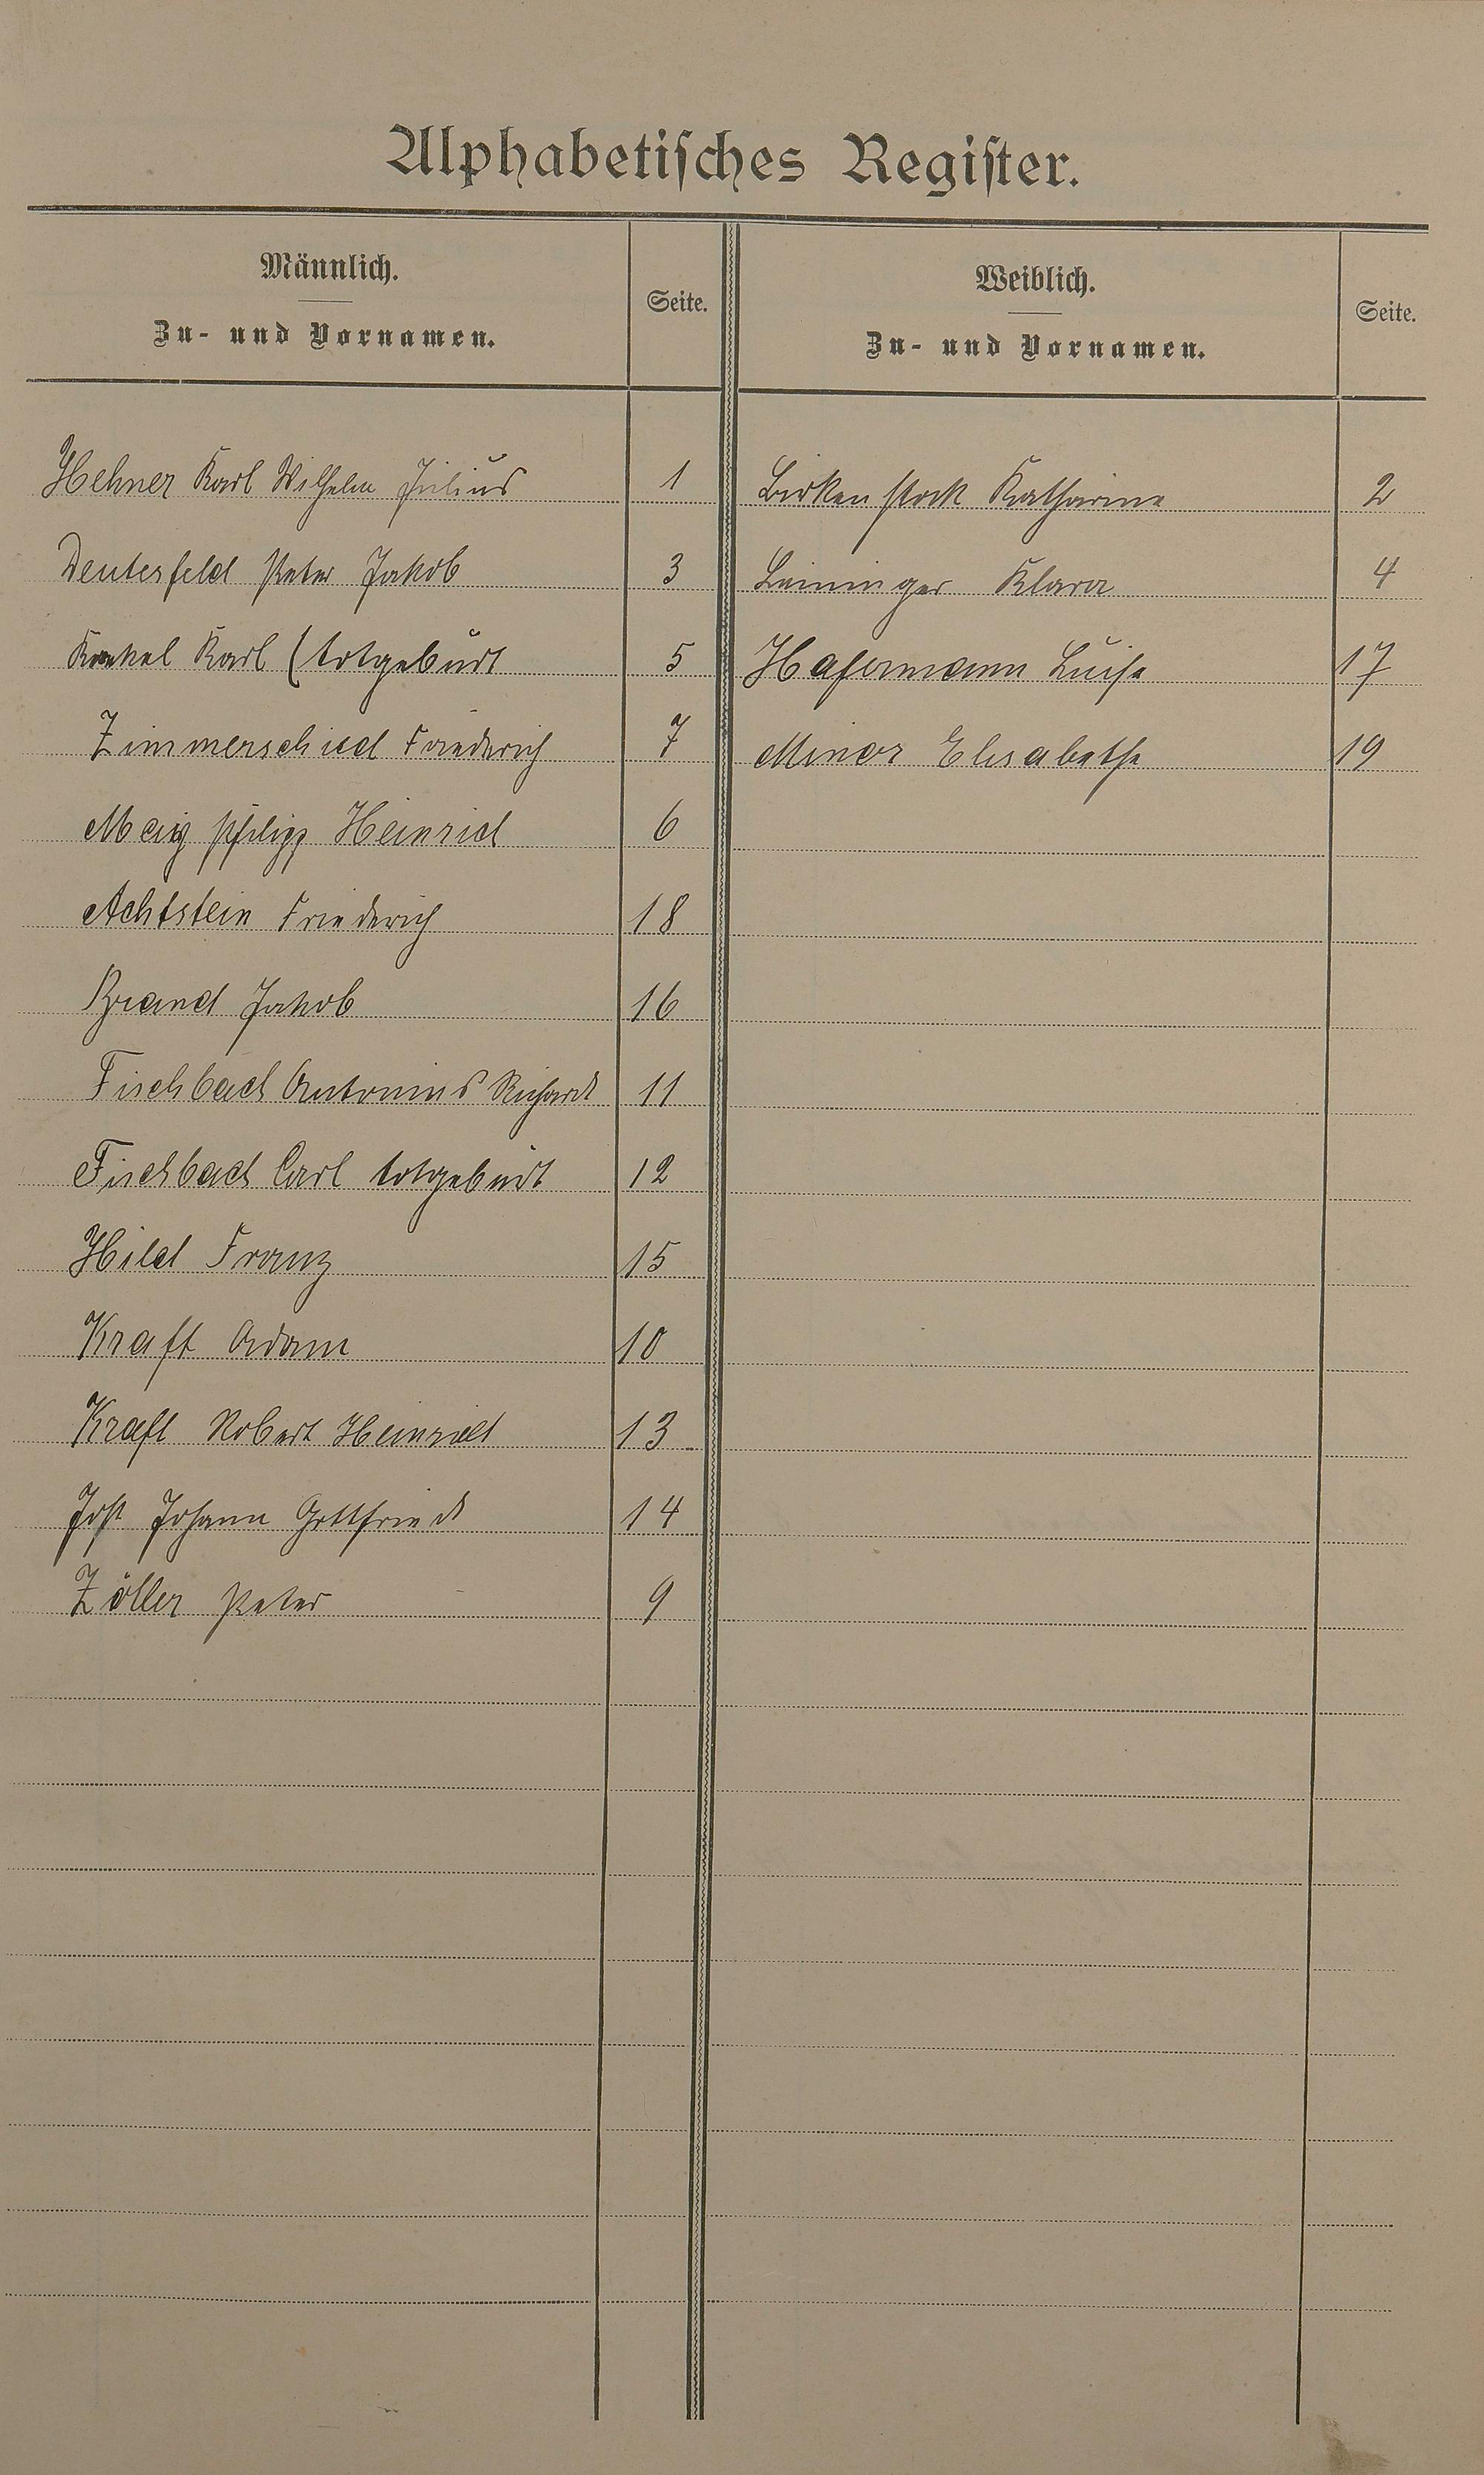 Alphabetisches Register.
Männlich.
Zu- und Vornamen.
Seite.
Weiblich.
Zu- und Vornamen.
Seite.
Hehner Karl Wilhelm Julius 1
Deutesfeld Peter Jakob 3
Karl (totgeburt 5
Zimmerschied Friederich 7
Philipp Heinrich 6
Achtstein Friederich 18
Brand Jakob 16
Fischbach Antonius Richard 11
Fischbach Carl totgeburt 12
Hild Franz 15
Kraft Adam 10
Kraft Robert Heinrich 13
Jost Johann Gottfried 14
Zöller Peter 9
Birkenstock Katharina 2
Leininger Klara 4
Hafermann Luise 17
Minor Elisabetha 19